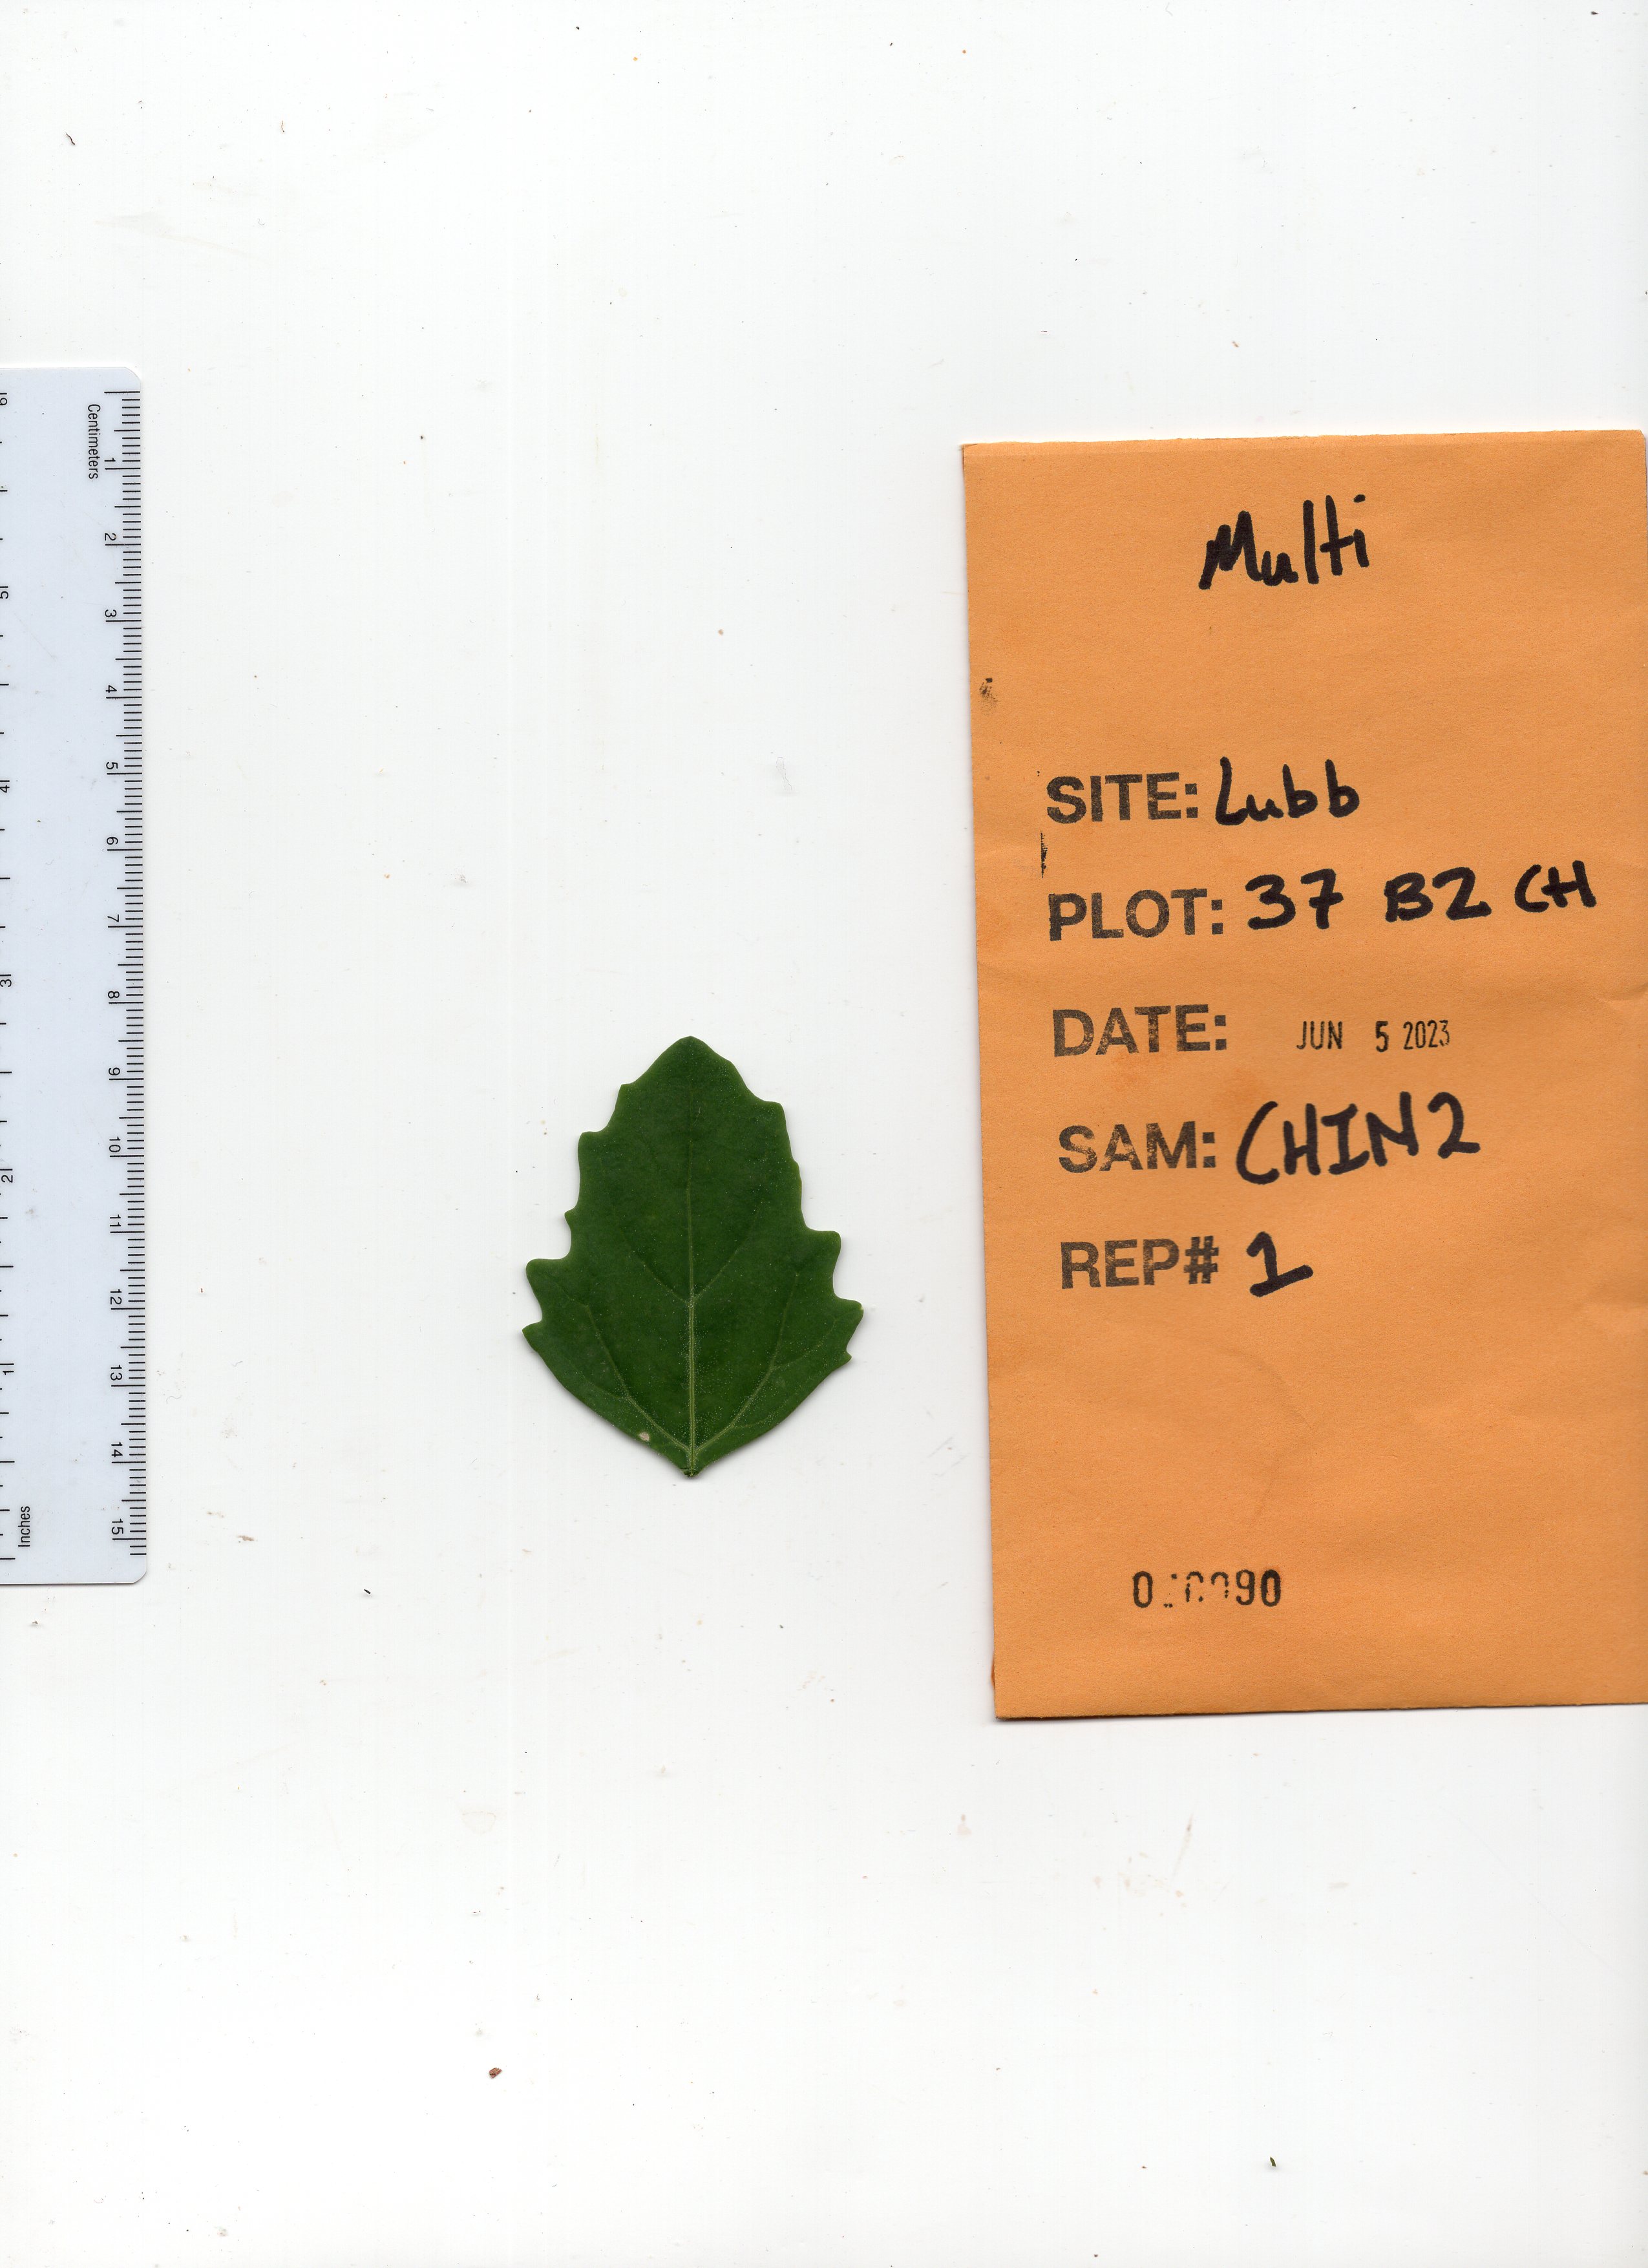 Centimeters
1
2
3
4
5
6
7
8
9
10
11
12
13
14
15
6
5
4
3
2
1
Inches
Multi
SITE: Lubb
PLOT: 37 B2 CH
DATE: JUN 5 2023
SAM: CHIN2
REP# 1